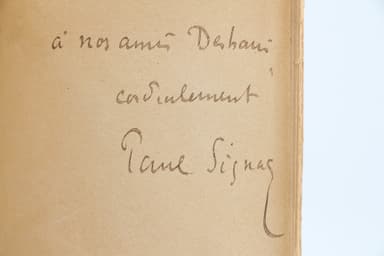 à nos amis
cordialement
Paul Signac